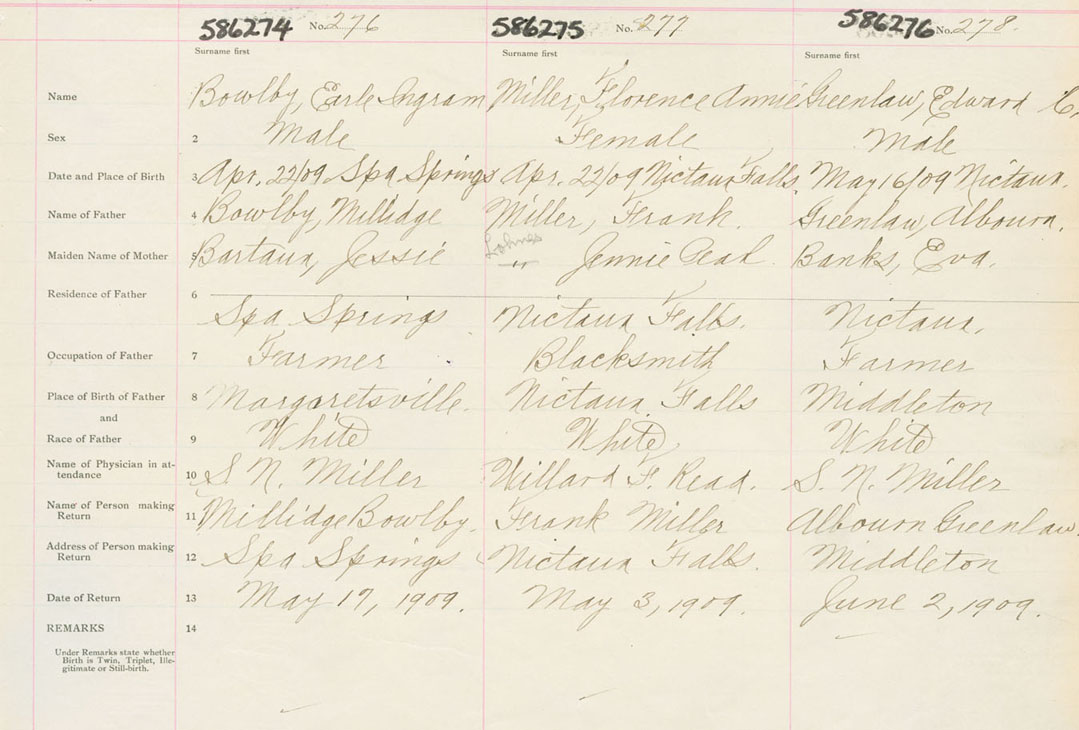 586274 No. 276 586275 No. 277 586276 No. 278.
Surname first Surname first Surname first
Name Bowlby, Earle Ingram Miller, Florence Annie Greenlaw, Edward C.
Sex 2 Male Female Male
Date and Place of Birth 3 Apr. 22/09 Spa Springs Apr. 22/09 Nictaux Falls. May 16/09 Nictaux.
Name of Father 4 Bowlby, Millidge Miller, Frank. Greenlaw, Albourn.
Maiden Name of Mother 5 Bartaux, Jessie Lohnes " Jennie Banks, Eva.
Residence of Father 6
Spa Springs Nictaux Falls. Nictaux.
Occupation of Father 7 Farmer Blacksmith Farmer
Place of Birth of Father 8 Margaretsville. Nictaux Falls Middleton
and
Race of Father 9 White White White
Name of Physician in at-
tendance 10 S. N. Miller Willard F. Read. S. N. Miller
Name of Person making
Return 11 Millidge Bowlby. Frank Miller Albourn Greenlaw.
Address of Person making
Return 12 Spa Springs Nictaux Falls. Middleton
Date of Return 13 May 17, 1909. May 3, 1909. June 2, 1909.
REMARKS 14
Under Remarks state whether
Birth is Twin, Triplet, Ille-
gitimate or Still-birth.